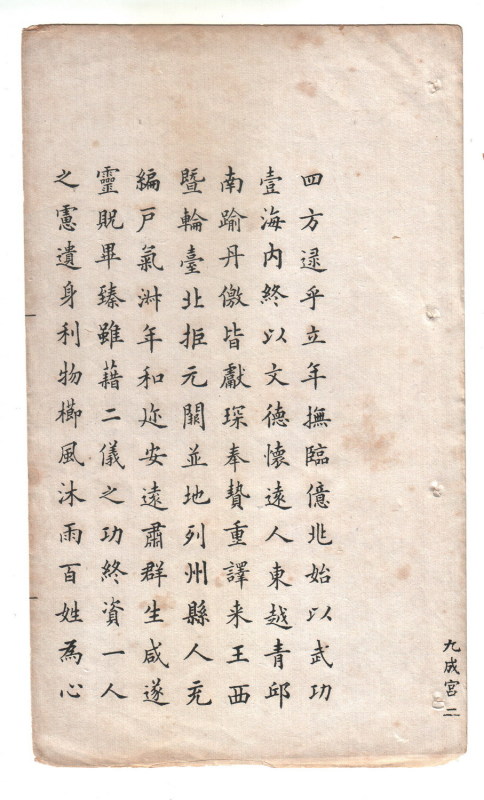 四方逮乎立年撫臨億兆始以武功
壹海内終以文德懷遠人東越青邱
南踰丹儌皆獻琛奉贄重譯来王西
暨輪臺北拒元闕並地列州縣人充
編戸氣淋年和迩安遠肅群生咸遂
靈貺畢臻雖藉二儀之功終資一人
之慮遺身利物櫛風沐雨百姓為心
九成宮二